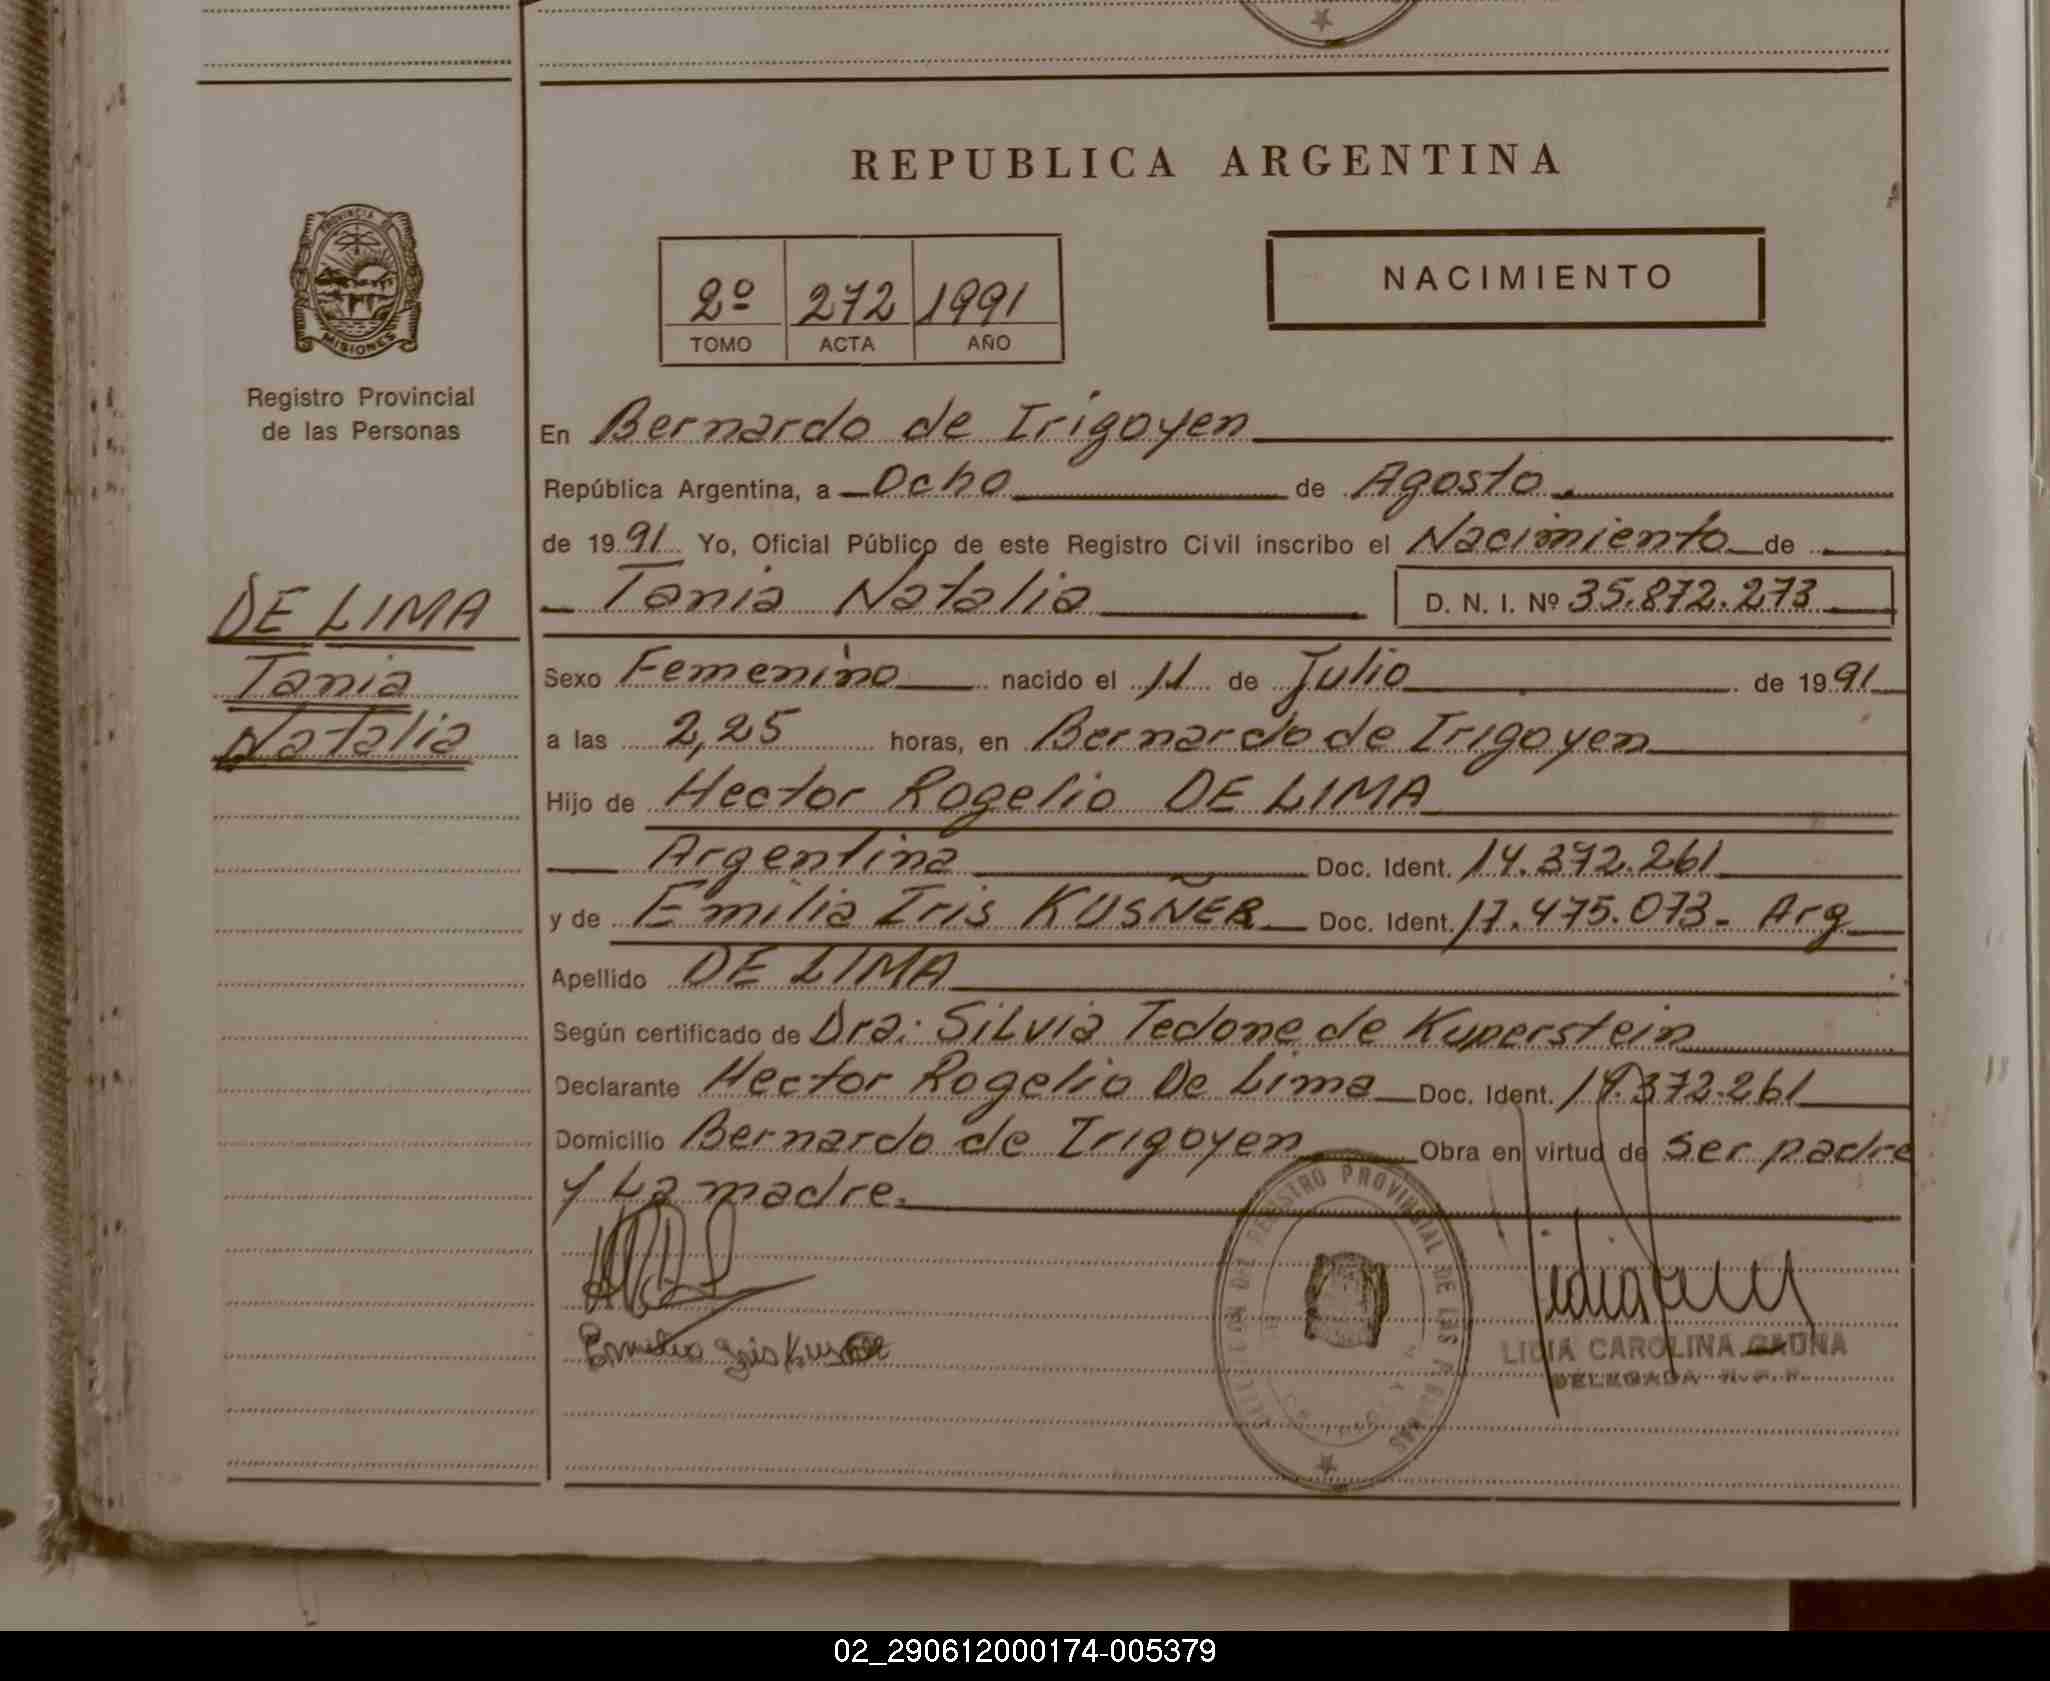 REPUBLICA ARGENTINA
PROVINCIA DE
MISIONES
Registro Provincial
de las Personas
2º 272 1991
TOMO ACTA AÑO
NACIMIENTO
DE LIMA
Tania
Natalia
En Bernardo de Irigoyen
República Argentina, a Ocho de Agosto
de 1991 Yo, Oficial Público de este Registro Civil inscribo el Nacimiento de
Tania Natalia D. N. I. Nº 35.872.273
Sexo Femenino nacido el 11 de Julio de 1991
a las 2,25 horas, en Bernardo de Irigoyen
Hijo de Hector Rogelio DE LIMA
Argentina Doc. Ident. 14.372.261
y de Emilia Iris KUSÑER Doc. Ident. 17.475.073- Arg
Apellido DE LIMA
Según certificado de Dra: Silvia Tedone de Kuperstein
Declarante Hector Rogelio De Lima Doc. Ident. 14.372.261
Domicilio Bernardo de Irigoyen Obra en virtud de ser padre
y La madre.
REGISTRO PROVINCIAL DE LAS PERSONAS
LIDIA CAROLINA GAUNA
DELEGADA R. P. P.
02_290612000174-005379